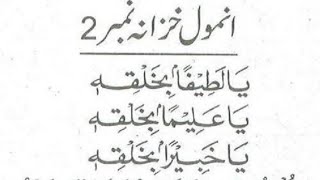 انمول خزانہ نمبر 2
يَا لَطِيْفًۢا بِخَلْقِهٖ
يَا عَلِيْمًۢا بِخَلْقِهٖ
يَا خَبِيْرًۢا بِخَلْقِهٖ